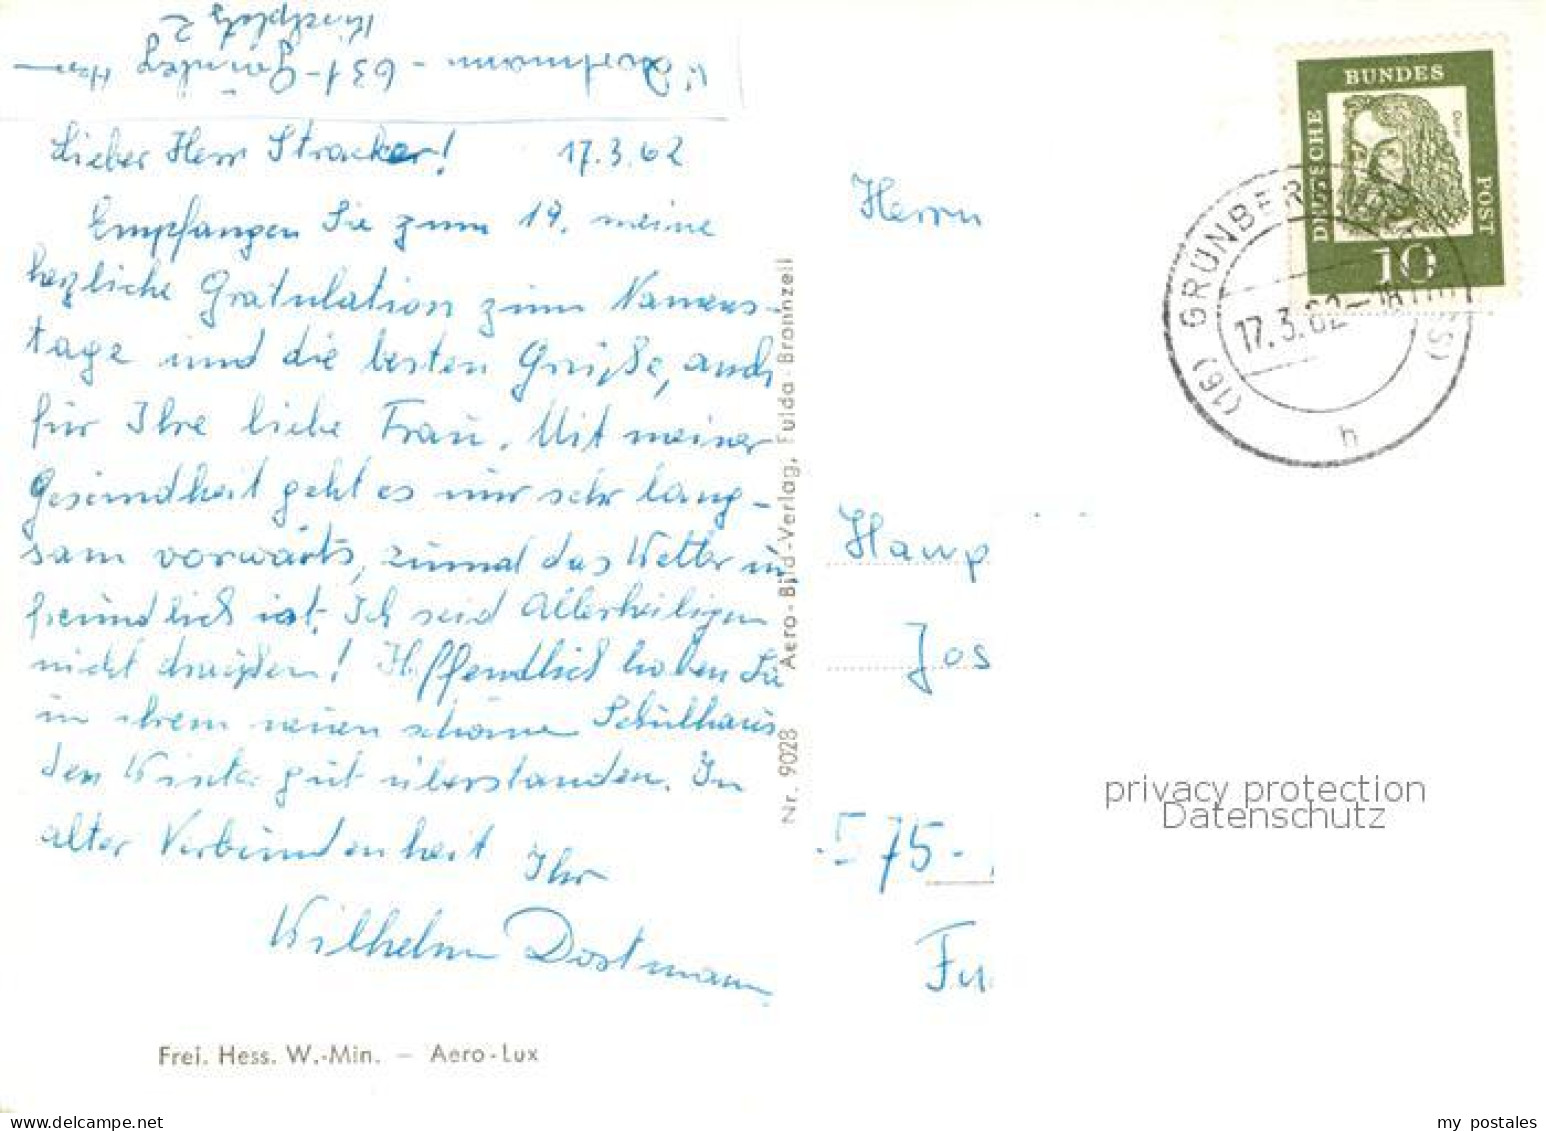 W. Dostmann - 631-Grünberg Hess
Kirchplatz 2
Lieber Herr Stracker! 17.3.62
Empfangen Sie zum 19. meine
herzliche Gratulation zum Namens-
tage und die besten Grüße, auch
für Ihre liebe Frau. Mit meiner
Gesundheit geht es nur sehr lang-
sam vorwärts, zumal das Wetter un
freundlich ist. Ich seid Allerheiligen
nicht draußen! Hoffendlich haben Sie
in ihrem neuen schönen Schulhaus
den Winter gut überstanden. In
alter Verbundenheit Ihr
Wilhelm Dostmann
Frei. Hess. W.-Min. – Aero-Lux
Nr. 9028 Aero-Bild-Verlag, Fulda-Bronnzell
Herrn
Haup
Jos
575-
Fu
DEUTSCHE BUNDES POST
Dürer
10
(16) GRÜNBERG
17.3.62-18
h
privacy protection
Datenschutz
my postales
www.delcampe.net